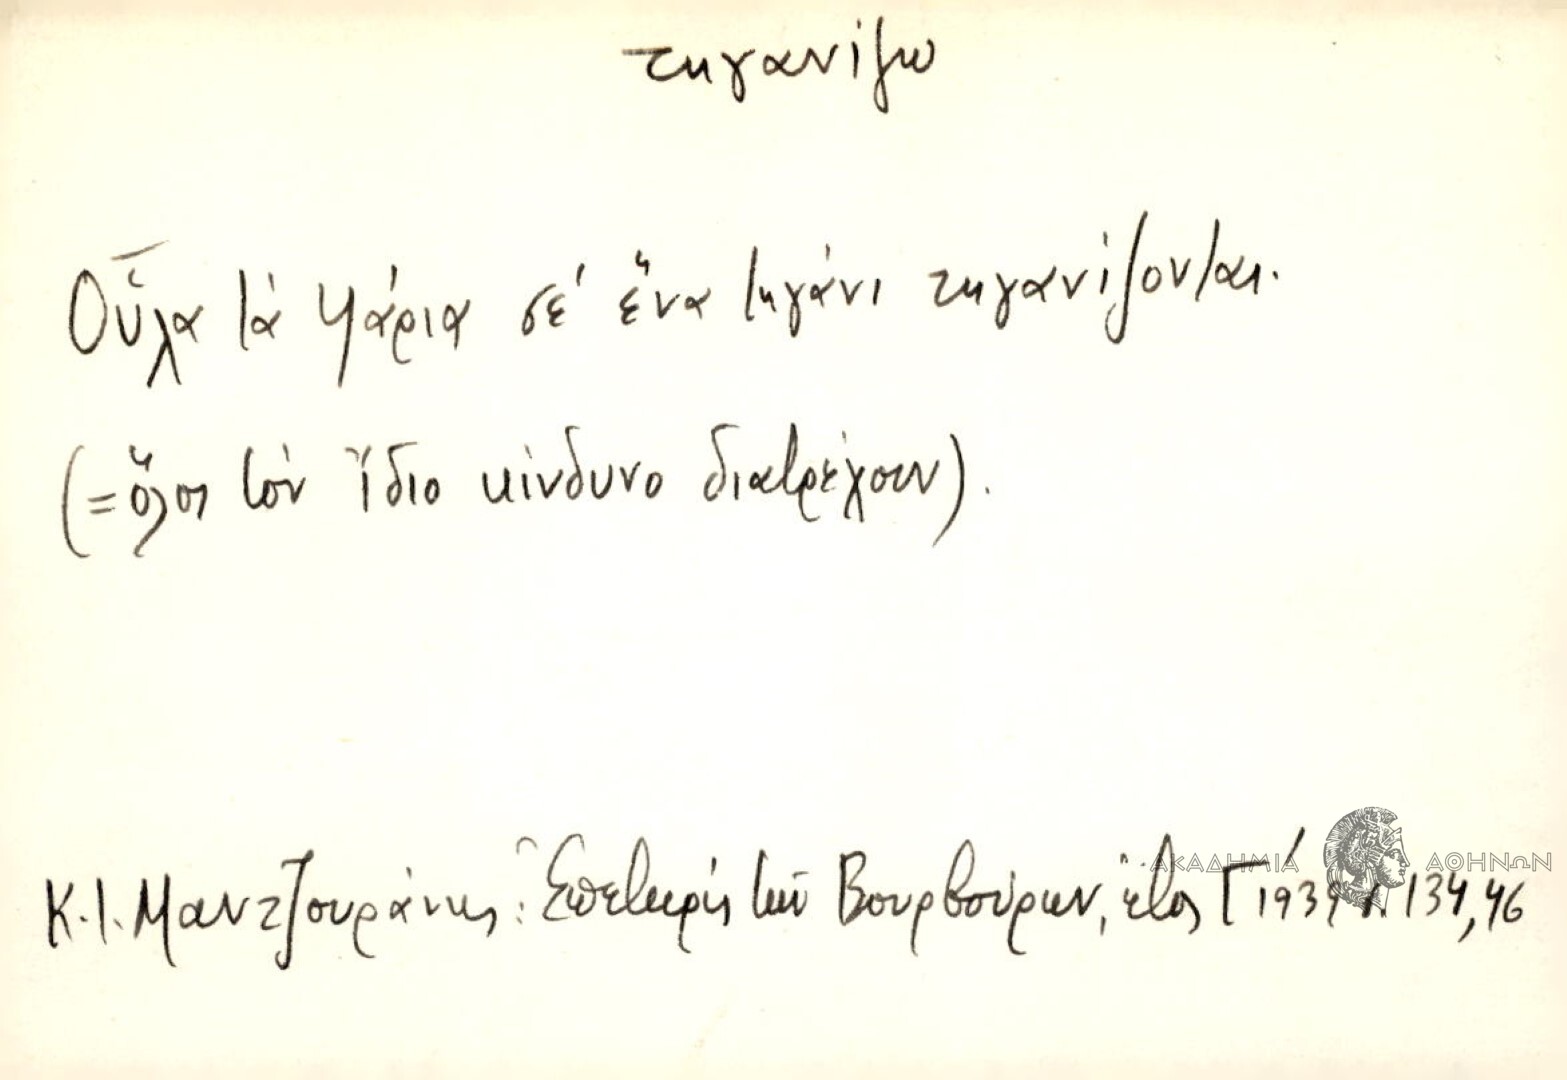 τηγανίζω
Οὗλα τὰ ψάρια σὲ ἕνα τηγάνι τηγανίζονται.
(= ὅλοι τὸν ἴδιο κίνδυνο διατρέχουν).
Κ. Ι. Μαντζουράνης: Ἐπετηρὶς τῶν Βουρβούρων, ἔτος Γ΄ 1939 134, 46
ΑΚΑΔΗΜΙΑ ΑΘΗΝΩΝ